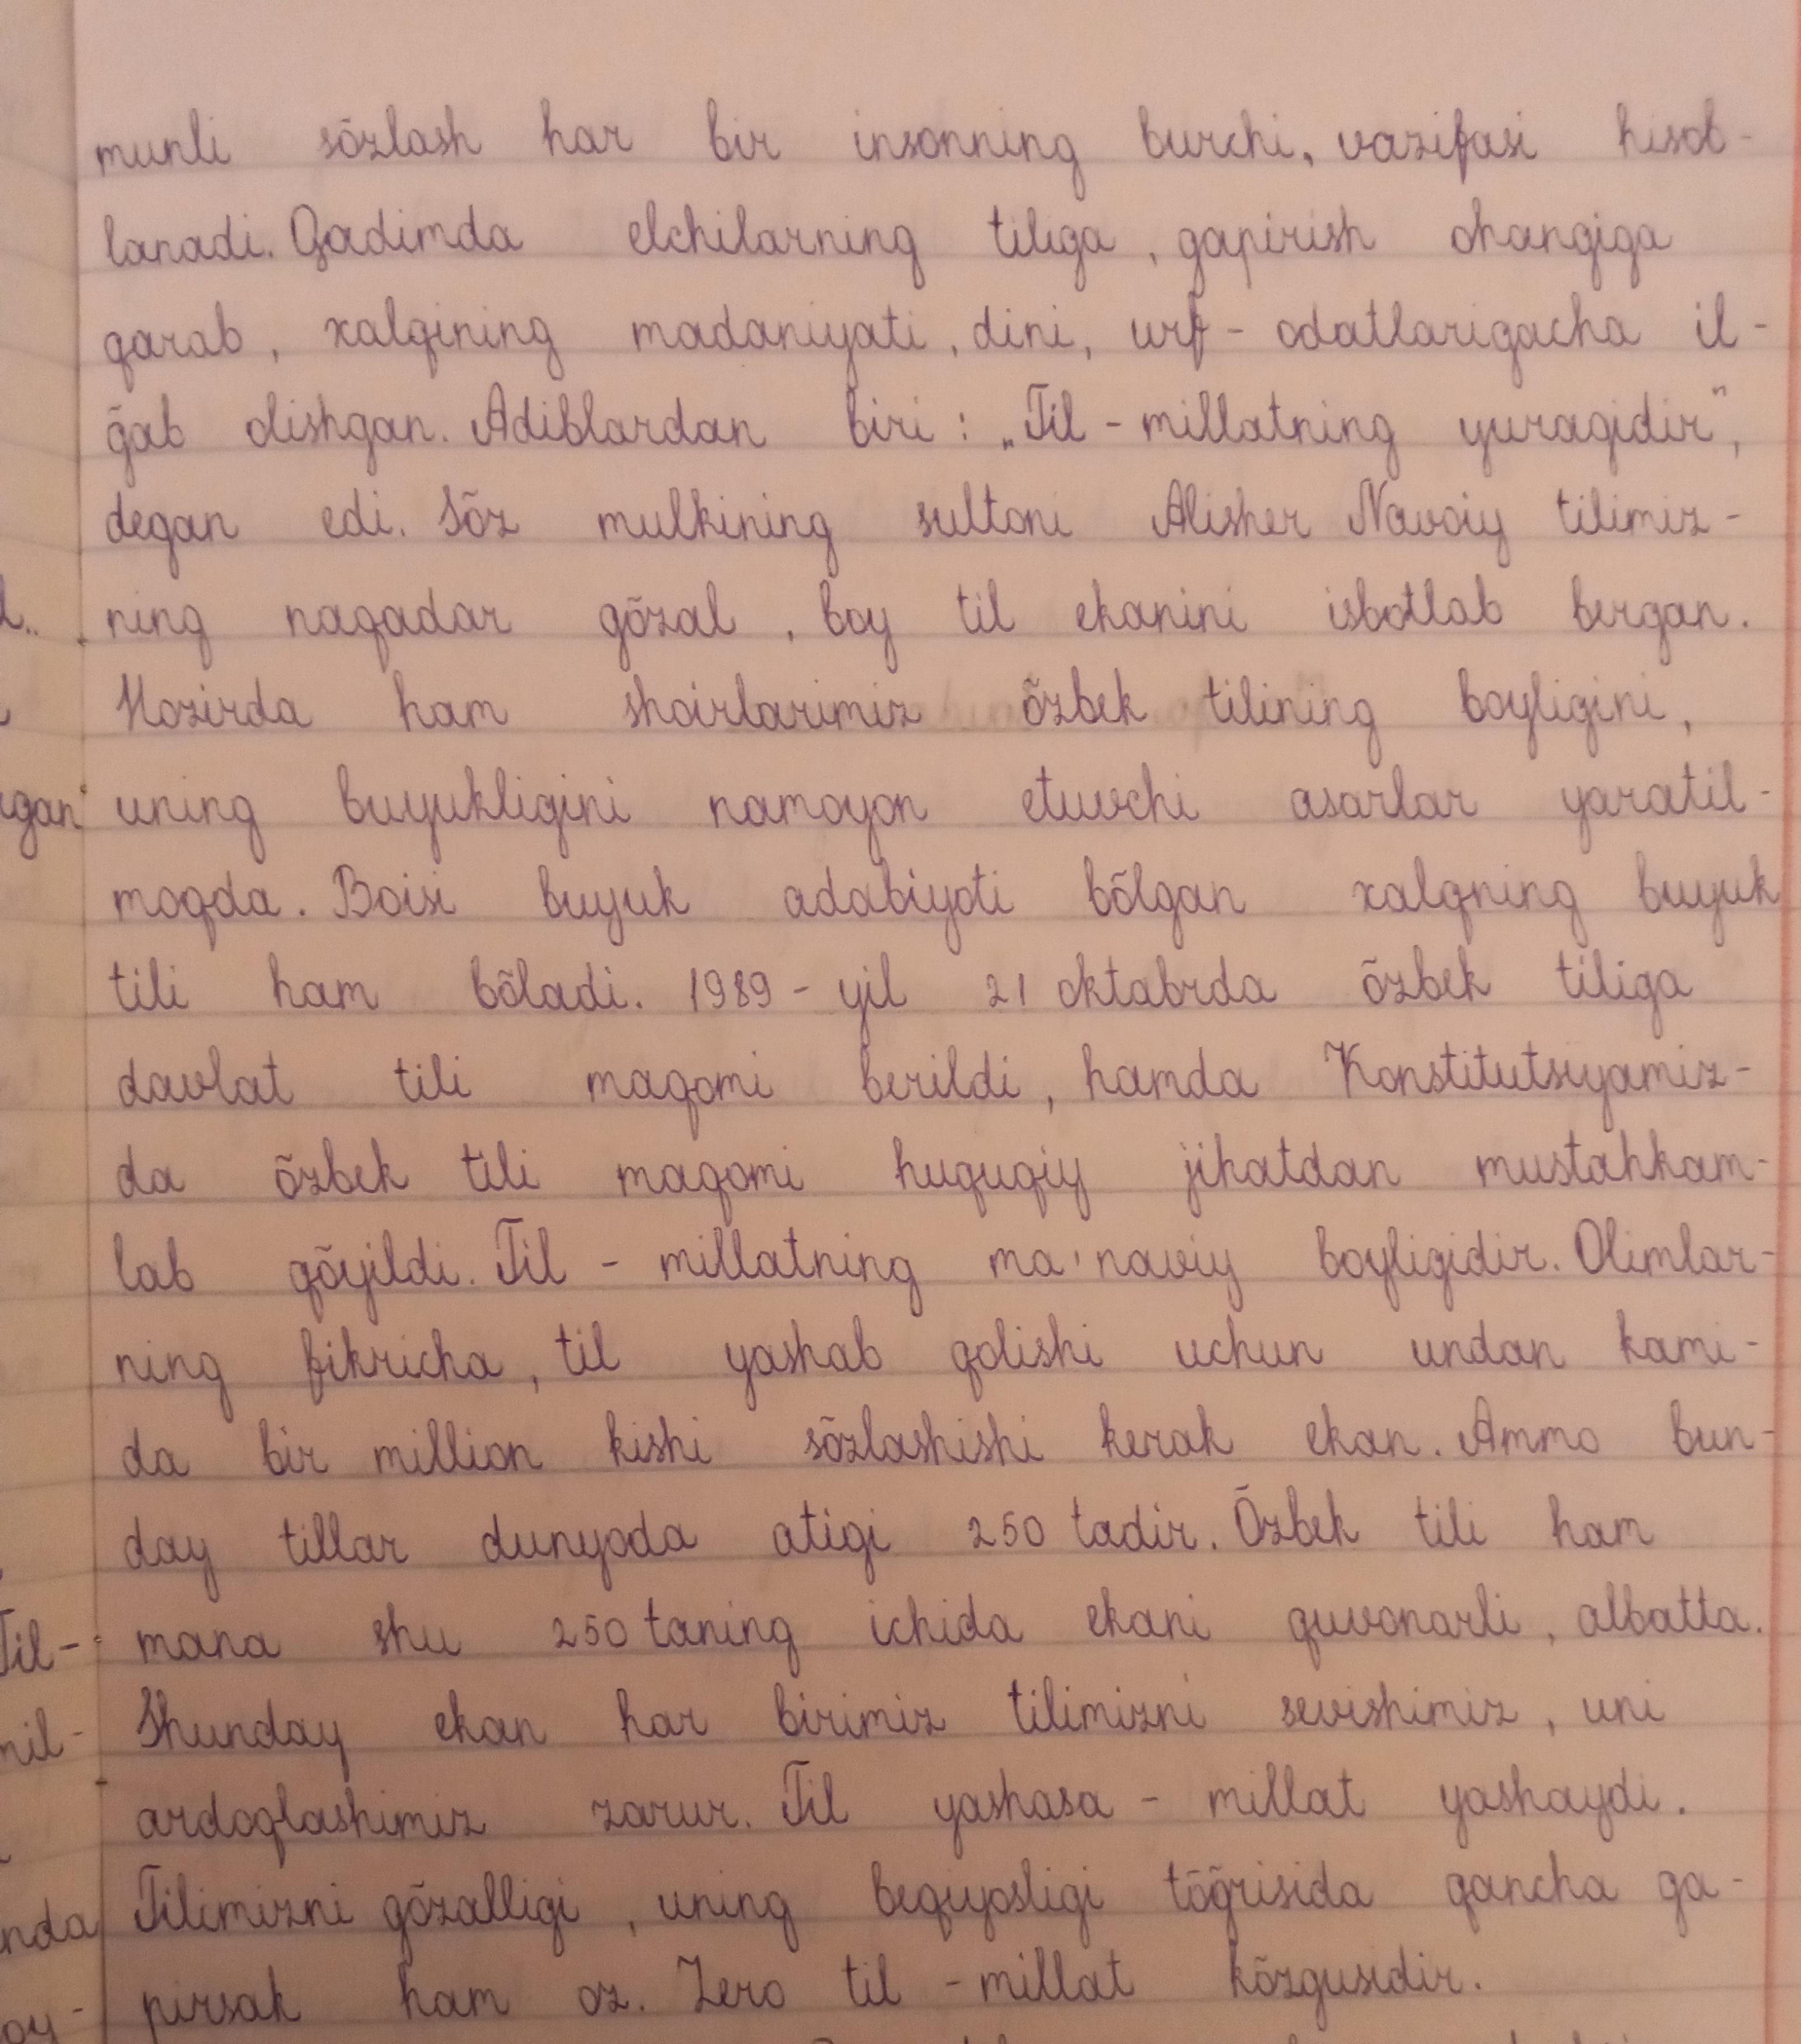 munli sõzlash har bir insonning burchi, vazifasi hisob-
lanadi. Qadimda elchilarning tiliga, gapirish ohangiga
qarab, xalqining madaniyati, dini, urf-odatlarigacha il-
g̃ab olishgan. Adiblardan biri: „Til - millatning yuragidir",
degan edi. Sõz mulkining sultoni Alisher Navoiy tilimiz-
ning naqadar gõzal, boy til ekanini isbotlab bergan.
Hozirda ham shoirlarimiz õzbek tilining boyligini,
uning buyukligini namoyon etuvchi asarlar yaratil-
moqda. Boisi buyuk adabiyoti bõlgan xalqning buyuk
tili ham bõladi. 1989-yil 21 oktabrda õzbek tiliga
davlat tili maqomi berildi, hamda Konstitutsiyamiz-
da õzbek tili maqomi huquqiy jihatdan mustahkam-
lab qõyildi. Til - millatning ma'naviy boyligidir. Olimlar-
ning fikricha, til yashab qolishi uchun undan kami-
da bir million kishi sõzlashishi kerak ekan. Ammo bun-
day tillar dunyoda atigi 250 tadir. Õzbek tili ham
mana shu 250 taning ichida ekani quvonarli, albatta.
Shunday ekan har birimiz tilimizni sevishimiz, uni
ardoqlashimiz zarur. Til yashasa - millat yashaydi.
Tilimizni gõzalligi, uning beqiyosligi tõg̃risida qancha ga-
pirsak ham oz. Zero til - millat kõzgusidir.